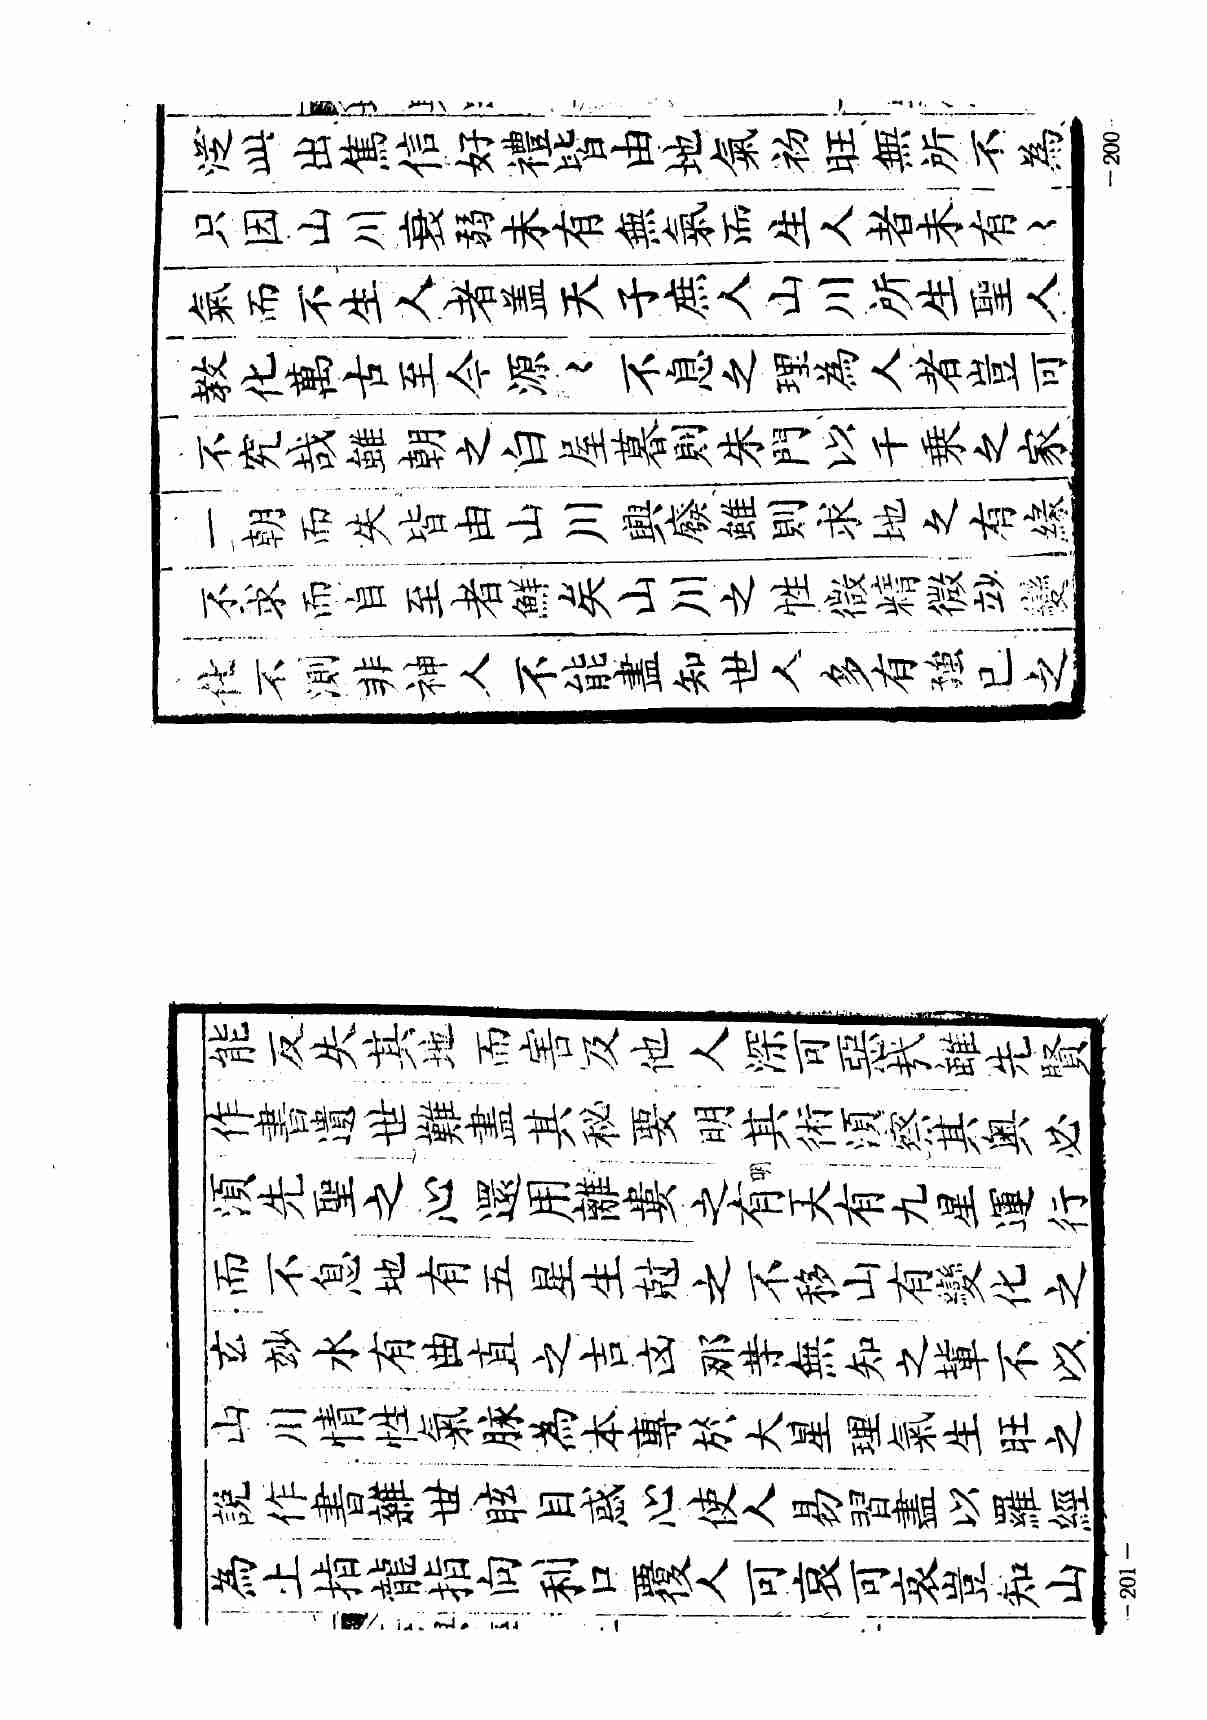 泛此出篤信好禮皆由地氣初旺無所不為
只因山川衰弱未有無氣而生人者未有〻
氣而不生人者盖天子庶人山川所生聖人
教化萬古至今源〻不息之理為人者豈可
不究哉雖朝之白屋暮則朱門以千乗之家
一朝而失皆由山川興廢雖則求地之有緣
不求而自至者鮮矣山川之性微精微玅變
化不測非神人不能盡知世人多有強己之
—200—
能反失其地而害及他人深可惡哉雖先賢
作書遺世難盡其秘要明其術須察其奥必
須先聖之心還用離婁之明有天有九星運行
而不息地有五星生尅之不移山有變化之
玄玅水有曲直之吉凶那等無知之輩不以
山川情性氣脉為本專於大星理氣生旺之
說作書離世眩目惑心使人易習盡以羅經
為上指龍指向利口覆人可哀可哀豈知山
—201—